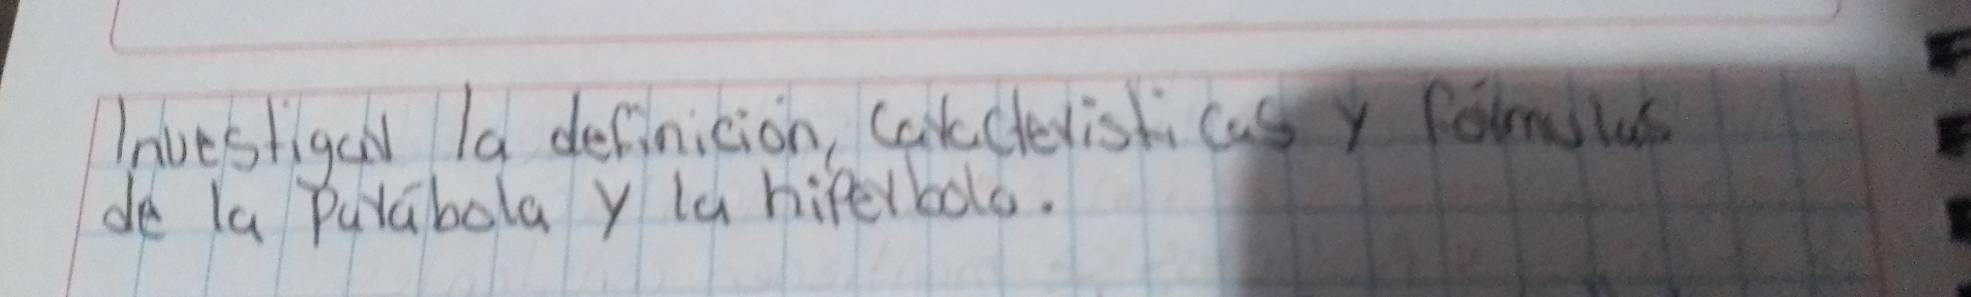 Investigar la definición, características y fórmulas
de la parábola y la hiperbola.